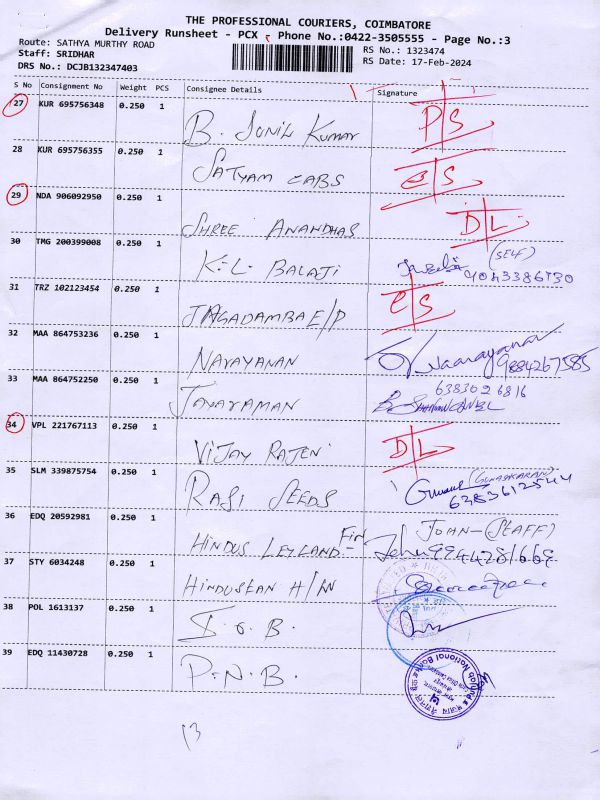 THE PROFESSIONAL COURIERS, COIMBATORE
Delivery Runsheet - PCX , Phone No.:0422-3505555 - Page No.:3
Route: SATHYA MURTHY ROAD
Staff: SRIDHAR
DRS No.: DCJB132347403
RS No.: 1323474
RS Date: 17-Feb-2024
S No Consignment No Weight PCS Consignee Details Signature
27 KUR 695756348 0.250 1 B. Sunil Kumar P/S
28 KUR 695756355 0.250 1 SATYAM CABS C/S
29 NDA 906092950 0.250 1 SHREE ANANDHAS D/L
30 TMG 200399008 0.250 1 K.L. BALAJI (SELF)
9043386730
31 TRZ 102123454 0.250 1 JAGADAMBA E/P C/S
32 MAA 864753236 0.250 1 NARAYANAN Naarayanan
9884267585
33 MAA 864752250 0.250 1 JAYARAMAN 6383026816
34 VPL 221767113 0.250 1 VIJAY RAJEN D/L
35 SLM 339875754 0.250 1 RASI SEEDS (GUNASKARAN)
6383612544
36 EDQ 20592981 0.250 1 HINDUS LEYLAND Fin JOHN-(STAFF)
John 9944281669
37 STY 6034248 0.250 1 HINDUSTAN H/LN
38 POL 1613137 0.250 1 I.O.B.
39 EDQ 11430728 0.250 1 P.N.B.
13